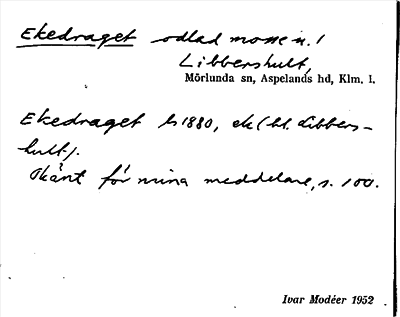 Ekedraget odlad mosse n. /
Libbershult,
Mörlunda sn, Aspelands hd, Klm. l.
Ekedraget ls 1880, ek (bl. Libbers-
hult).
Okänt för mina meddelare, s. 100.
Ivar Modéer 1952